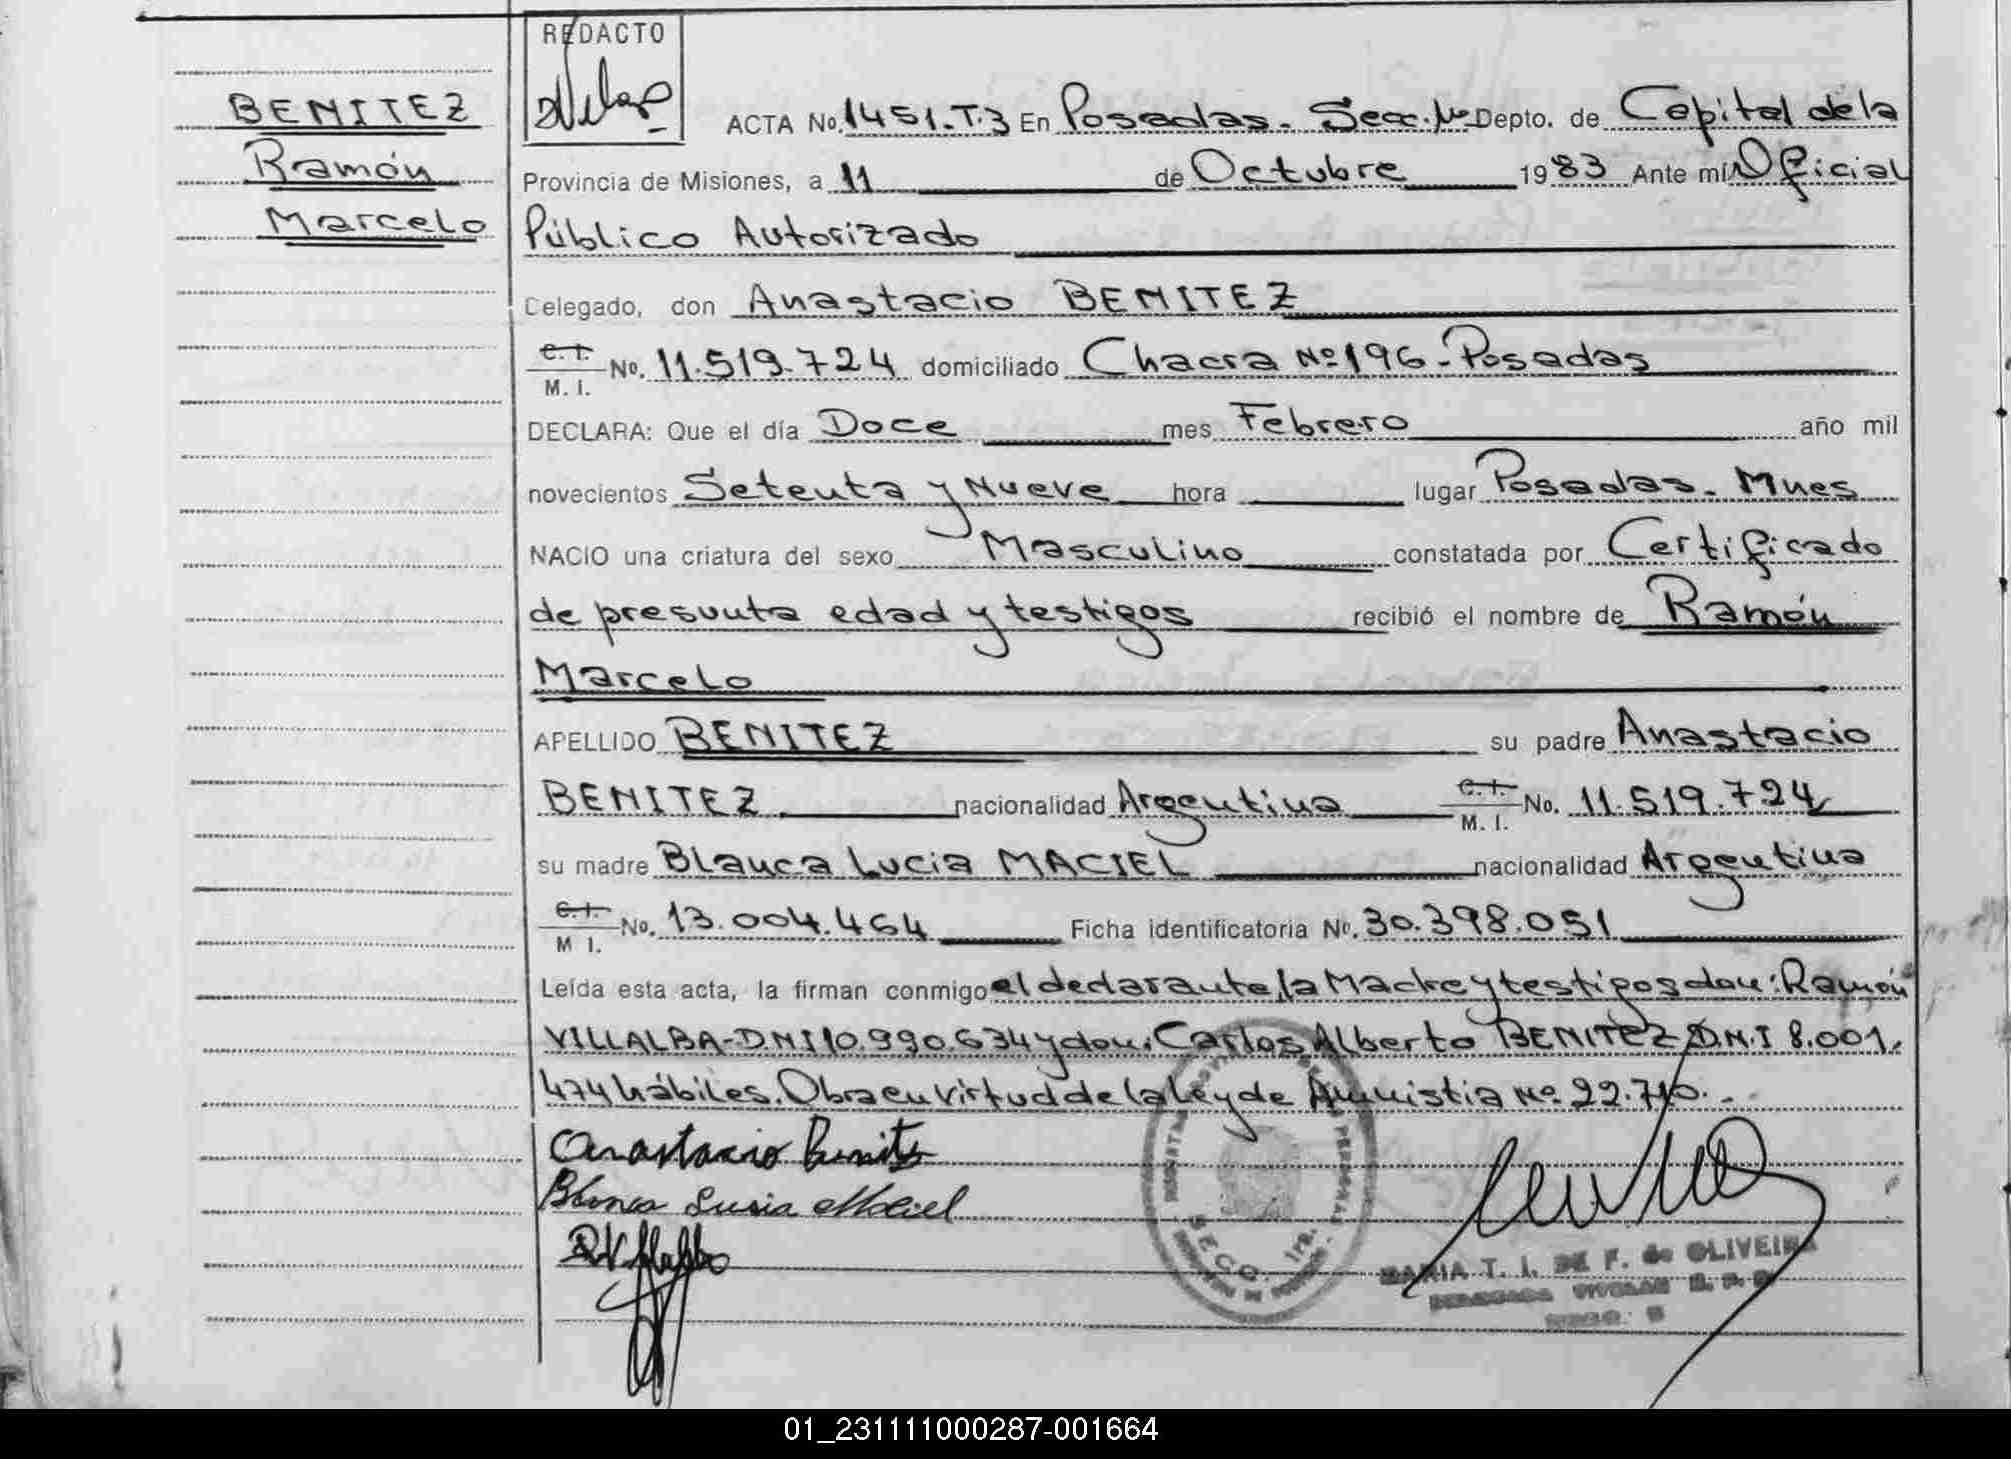 REDACTO
BENITEZ
Ramón
Marcelo
ACTA No. 1451.T.3 En Posadas. Secc. Depto. de Capital de la
Provincia de Misiones, a 11 de Octubre 1983 Ante mí Oficial
Público Autorizado
Delegado, don Anastacio BENITEZ
C. I. M. I. No. 11.519.724 domiciliado Chacra Nº 196 - Posadas
DECLARA: Que el día Doce mes Febrero año mil
novecientos Setenta y Nueve hora lugar Posadas. Mnes
NACIO una criatura del sexo Masculino constatada por Certificado
de presunta edad y testigos recibió el nombre de Ramón
Marcelo
APELLIDO BENITEZ su padre Anastacio
BENITEZ nacionalidad Argentina C. I. M. I. No. 11.519.724
su madre Blanca Lucia MACIEL nacionalidad Argentina
C. I. M I. No. 13.004.464 Ficha identificatoria No. 30.398.051
Leída esta acta, la firman conmigo el declarante, la Madre y testigos don: Ramón
VILLALBA - D.N.I 10.990.634 y don: Carlos Alberto BENITEZ D.N.I 8.001.
474 hábiles. Obra en virtud de la ley de Amnistia Nº 22.710. -
Anastacio Benitez
Blanca Lucia Maciel
MARIA T. I. DE F. de OLIVEIRA
01_231111000287-001664